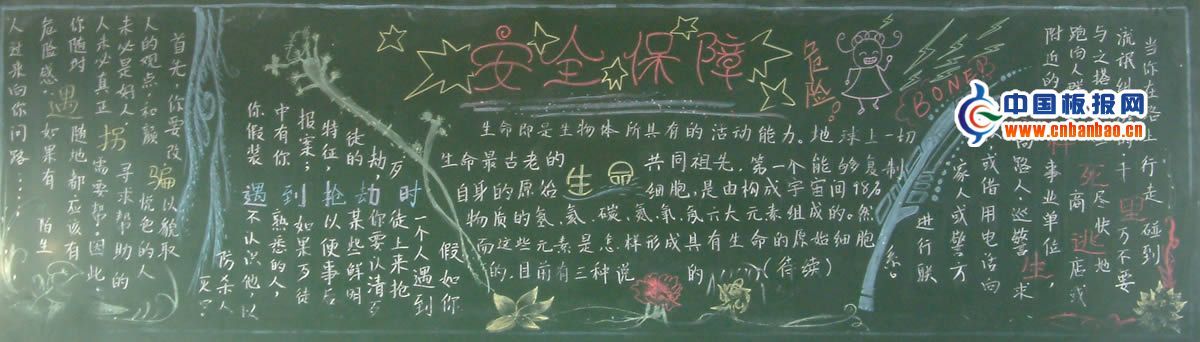 安全保障
危险!
BONEB
中国板报网
www.cnbanbao.cn
当你在路上行走碰到
流氓 的 千万不要
与之搭 尽快地
跑向人群 商店或
附近的 事业单位,
向路人、巡警求
以或借用电话向
家人或警方
进行联
系。
死里逃生
生命
生命即是生物体所具有的活动能力。地球上一切
生命最古老的共同祖先,第一个能够复制
自身的原始细胞,是由构成宇宙间18%
物质的氢、氦、碳、氮、氧、 六大元素组成的。然
而这些元素是怎样形成具有生命的原始细胞
的,目前有三种说 的(待续)
遇到抢劫时
假如你
一个人遇到
歹徒上来抢
劫,你要认清歹
徒的某些鲜明
特征,以便事后
报案,如果歹徒
中有你熟悉的人,
你假装不认识他,以
防杀人
灭口
遇拐骗
首先,你要改 以貌取
人的观点,和颜悦色的人
未必是好人,寻求帮助的
人未必真正需要帮,因此
你随时随地都应该有
危险感。如果有陌生
人过来向你问路……